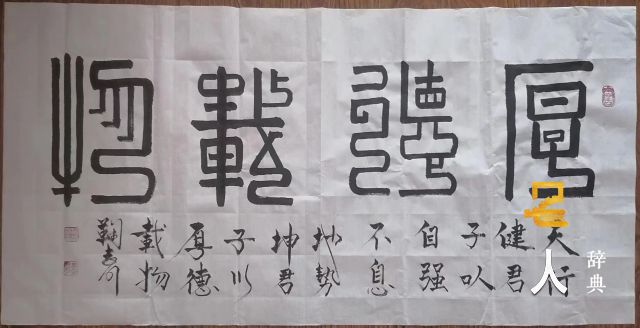 厚德載物
天行
健君
子以
自强
不息
地勢
坤君
子以
厚德
載物
人
辞典